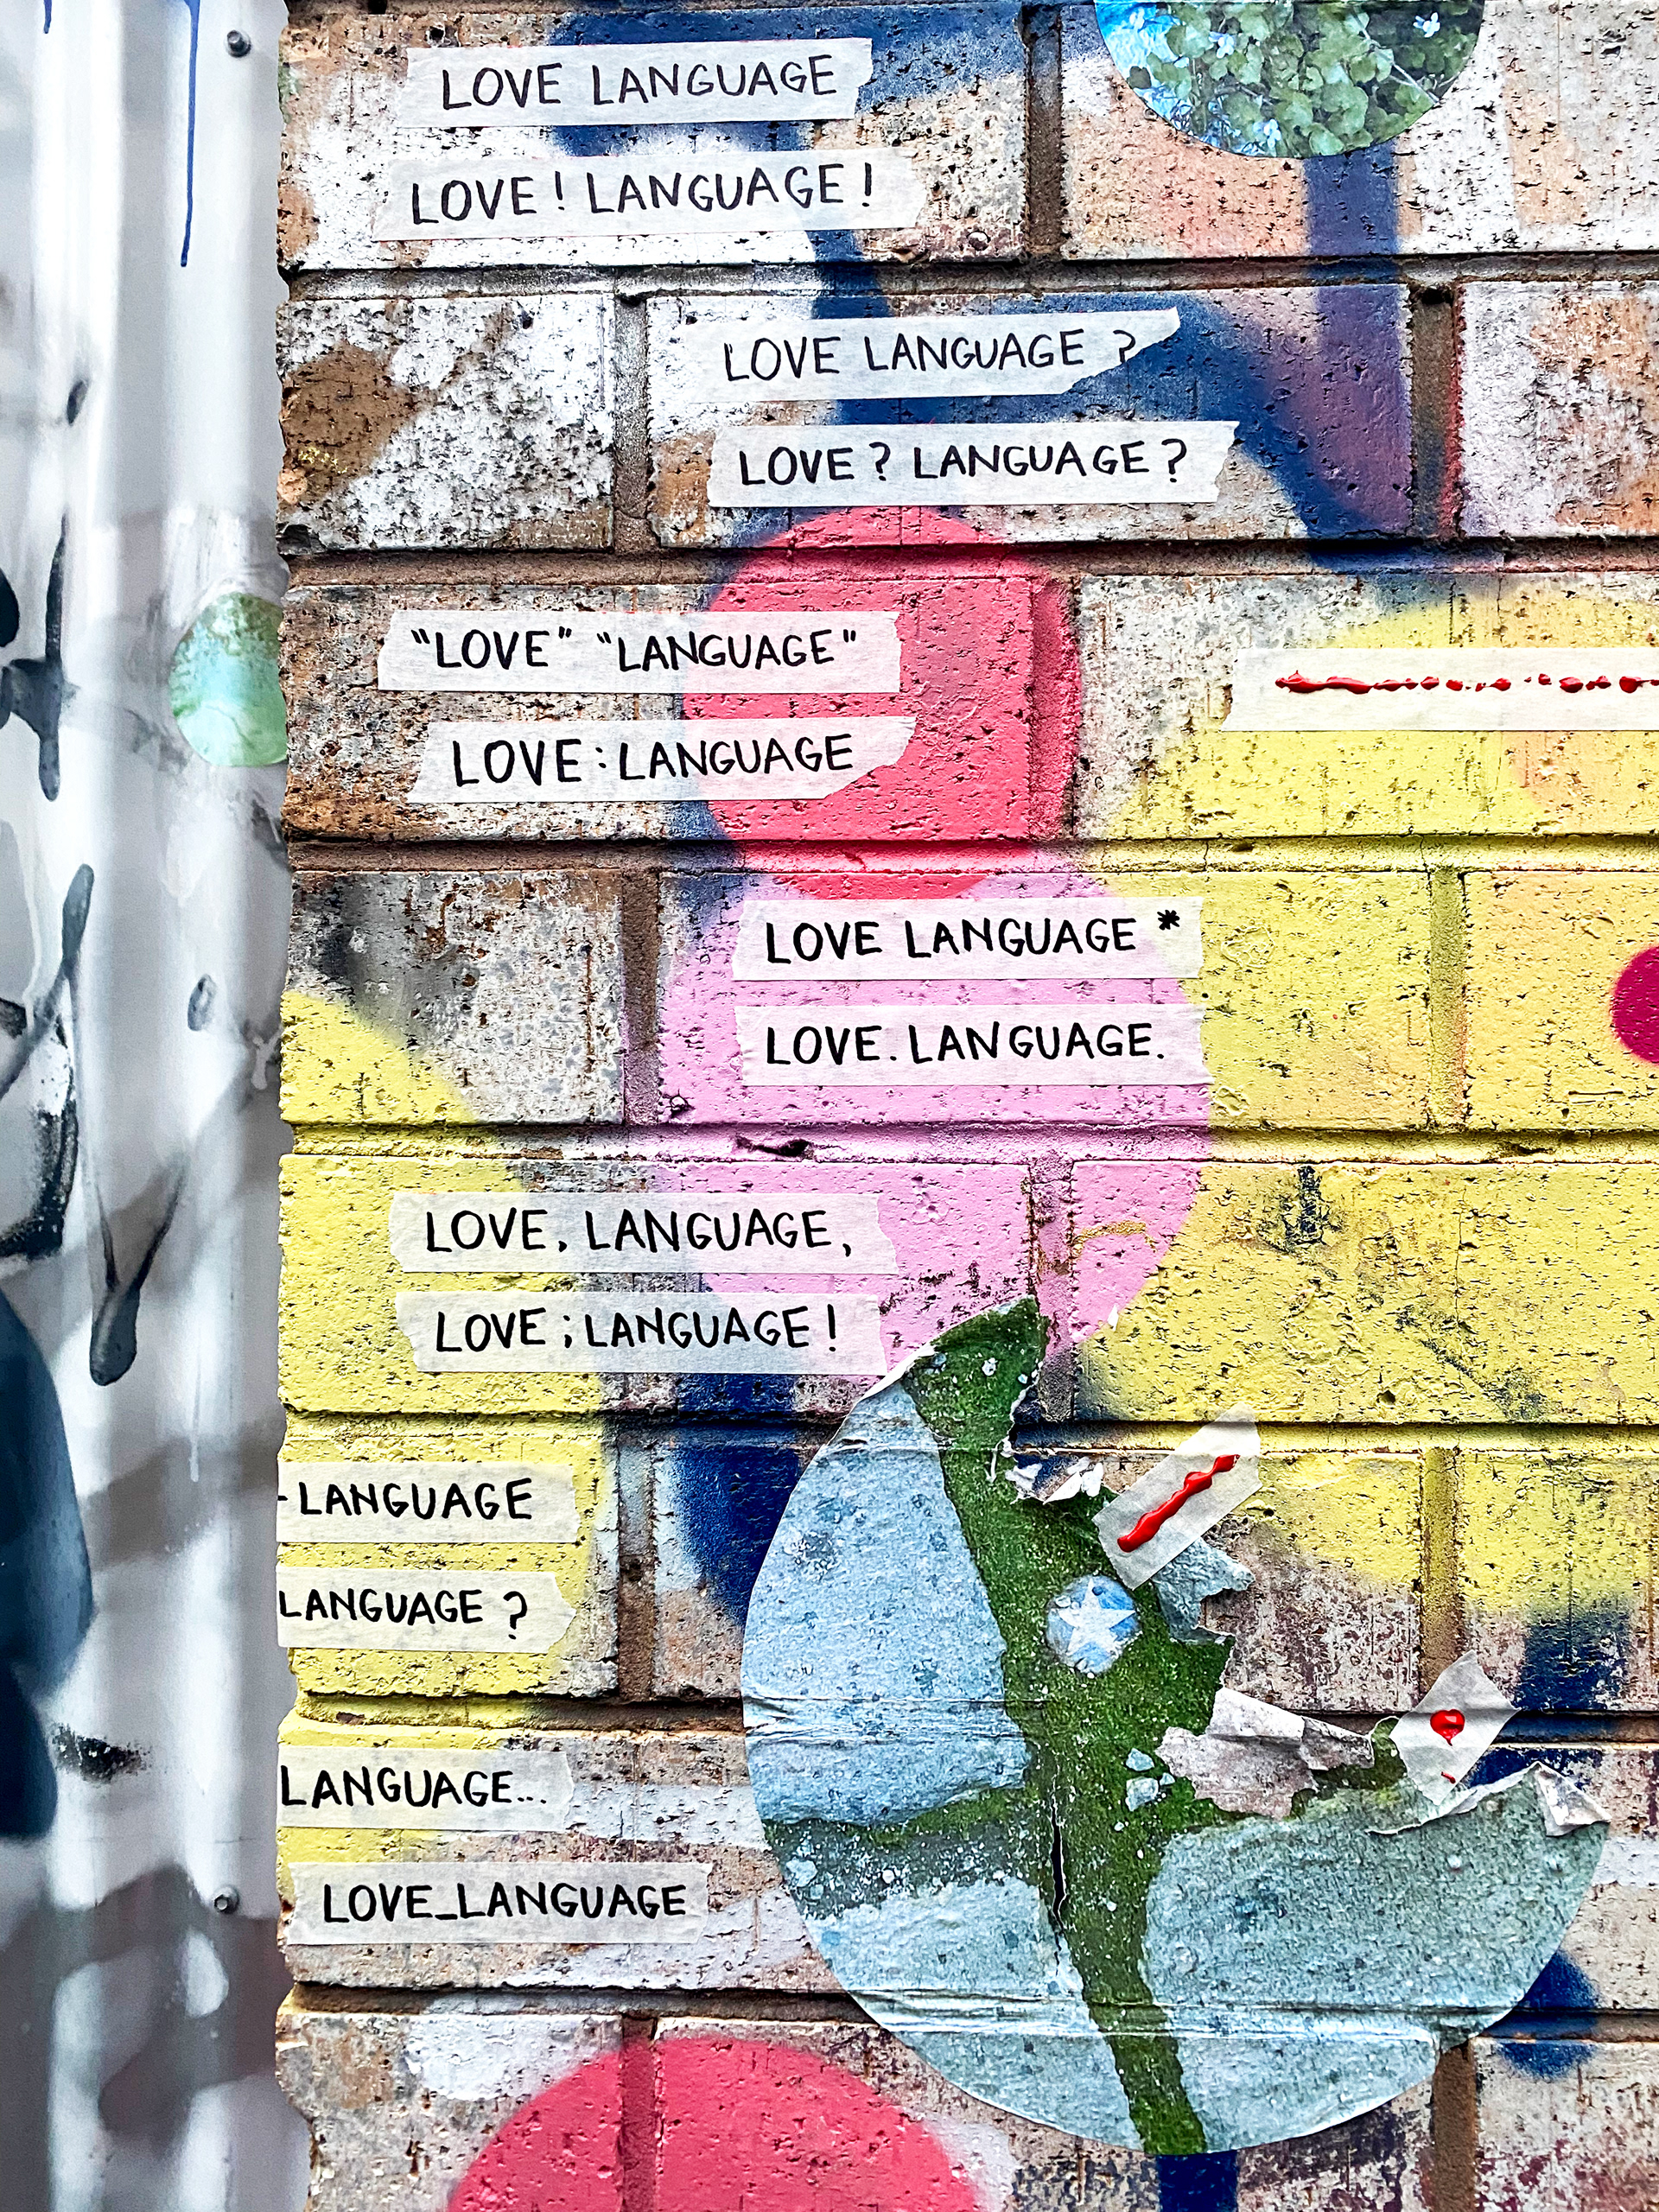 LOVE LANGUAGE
LOVE! LANGUAGE!
LOVE LANGUAGE?
LOVE? LANGUAGE?
"LOVE" "LANGUAGE"
LOVE: LANGUAGE
LOVE LANGUAGE *
LOVE. LANGUAGE.
LOVE, LANGUAGE,
LOVE; LANGUAGE!
-LANGUAGE
LANGUAGE?
LANGUAGE...
LOVE_LANGUAGE